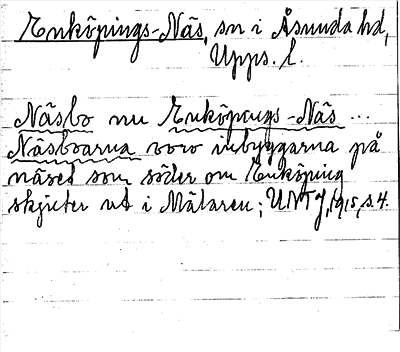 Enköpings-Näs, sn i Åsunda hd,
Upps. l.
Näsbo nu Enköpings-Näs ...
Näsboarna voro inbyggarna på
näset som söder om Enköping
skjuter ut i Mälaren; UNT J, 1915, s. 4.